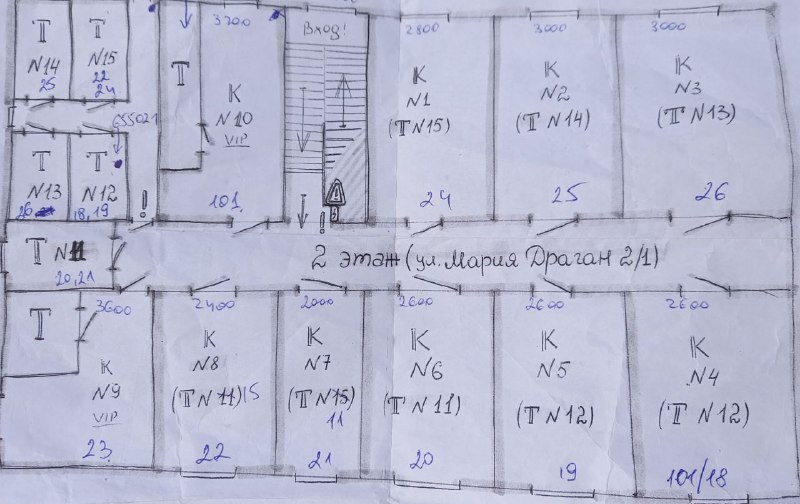 T
N14
25
T
N15
22
24
655021
T
N13
26
T
N12
18,19
!
T
3700
К
N10
VIP
101
Вход!
!
2800
К
N1
(TN15)
24
3000
К
N2
(TN14)
25
3000
К
N3
(TN13)
26
T N11
20,21
2 этаж (ул. Мария Драган 2/1)
T
3600
К
N9
VIP
23
2400
К
N8
(TN11) 15
22
2000
К
N7
(TN15)
11
21
2600
К
N6
(TN11)
20
2600
К
N5
(TN12)
19
2600
К
N4
(TN12)
101/18